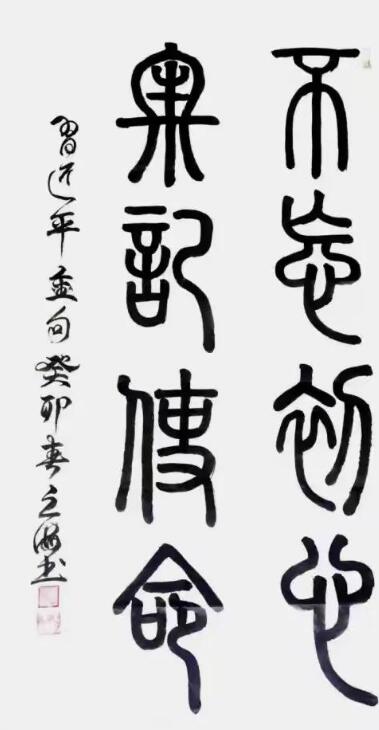 不忘初心
牢記使命
習近平金句癸卯春之海书